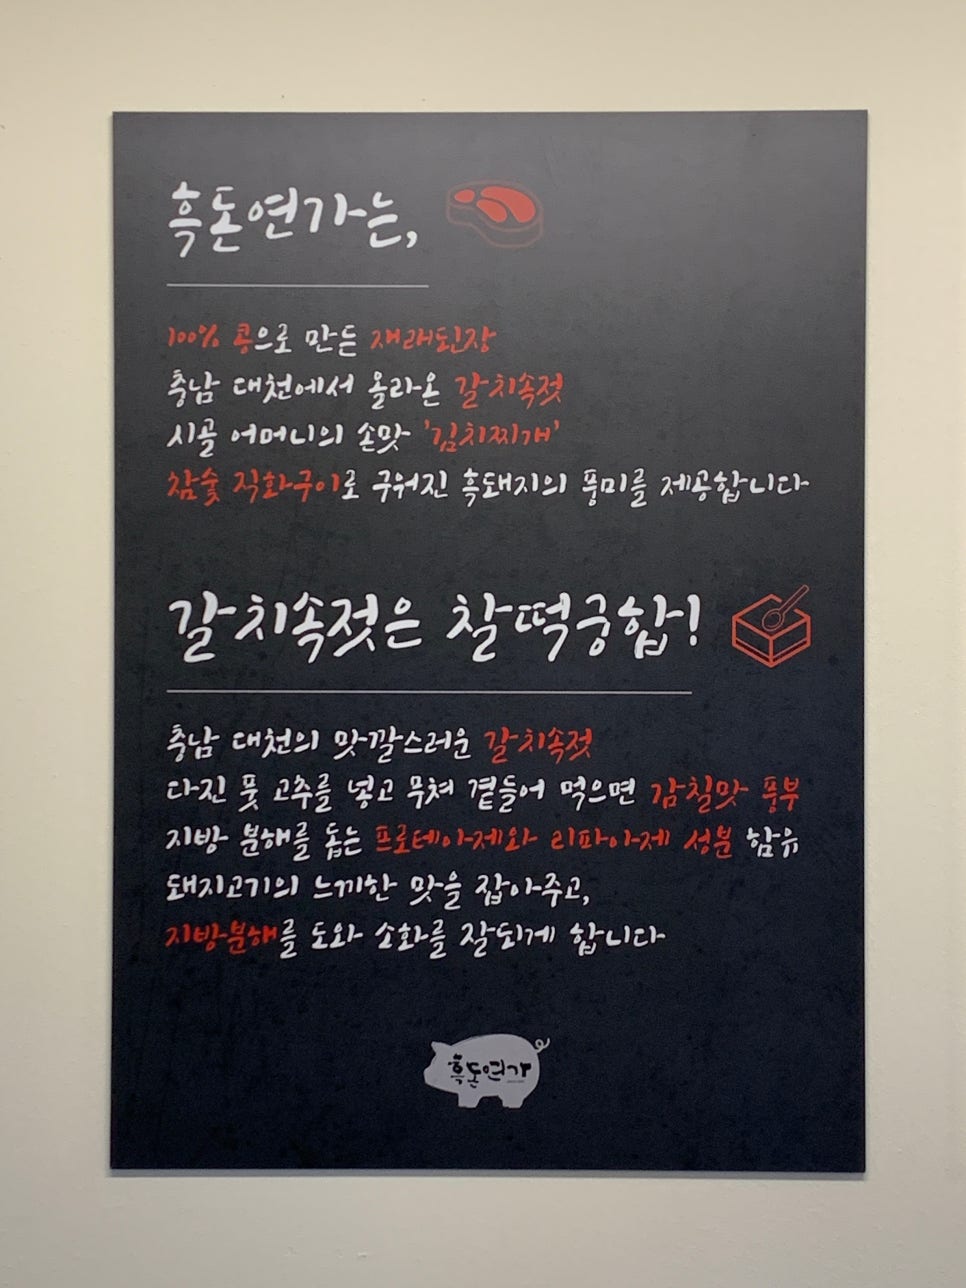 흑돈연가는,
100% 콩으로 만든 재래된장
충남 대천에서 올라온 갈치속젓
시골 어머니의 손맛 '김치찌개'
참숯 직화구이로 구워진 흑돼지의 풍미를 제공합니다
갈치속젓은 찰떡궁합!
충남 대천의 맛깔스러운 갈치속젓
다진 풋 고추를 넣고 무쳐 곁들어 먹으면 감칠맛 풍부
지방 분해를 돕는 프로테아제와 리파아제 성분 함유
돼지고기의 느끼한 맛을 잡아주고,
지방분해를 도와 소화를 잘되게 합니다
흑돈연가